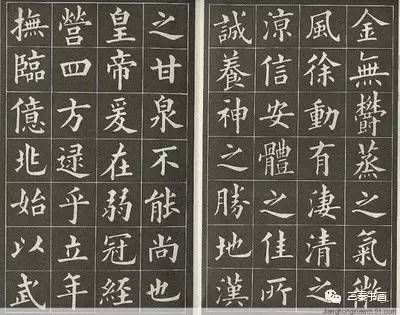 金無鬱蒸之氣微
風徐動有淒清之
涼信安體之佳所
誠養神之勝地漢
之甘泉不能尚也
皇帝爰在弱冠經
營四方逮乎立年
撫臨億兆始以武